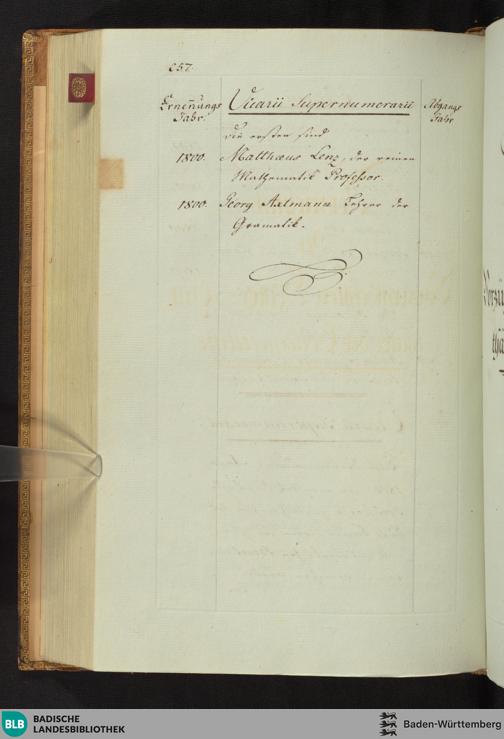 257.
Ernennungs Jahr.
Vicarii Supernumerarii
Abgangs Jahr
die ersten sind
1800. Matthaeus Lenz, der reinen
Mathematik Professor.
1800. Georg Axtmann Lehrer der
Gramatik.
BLB
BADISCHE
LANDESBIBLIOTHEK
Baden-Württemberg